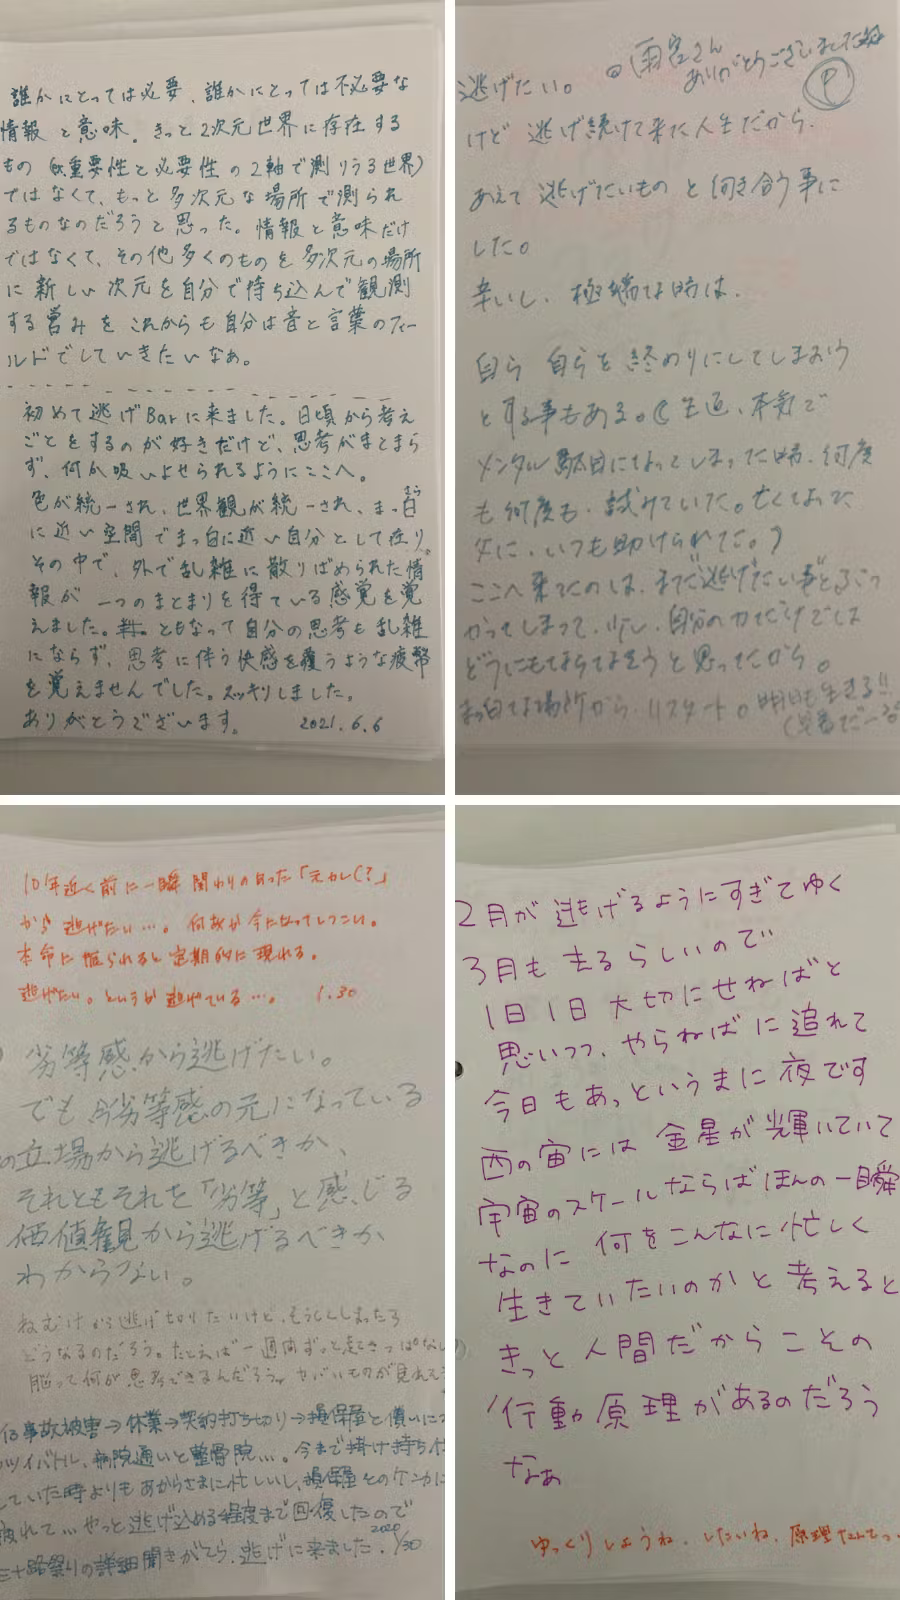 誰かにとっては必要、誰かにとっては不必要な
情報と意味。きっと2次元世界に存在する
もの(重要性と必要性の2軸で測りうる世界)
ではなくて、もっと多次元な場所で測られ
るものなのだろうと思った。情報と意味だけ
ではなくて、その他多くのものを多次元の場所
に新しい次元を自分で持ち込んで観測
する営みをこれからも自分は音と言葉のフィー
ルドでしていきたいなあ。
初めて逃げBarに来ました。日頃から考え
ごとをするのが好きだけど、思考がまとまら
ず、何か吸いよせられるようにここへ。
色が統一され、世界観が統一され、まっ白
さら
に近い空間でまっ白に近い自分として在り。
その中で、外で乱雑に散りばめられた情
報が一つのまとまりを得ている感覚を覚
えました。ともなって自分の思考も乱雑
にならず、思考に伴う快感を覆うような疲弊
を覚えませんでした。スッキリしました。
ありがとうございます。 2021.6.6
雨宮さん
ありがとうございました
P
逃げたい。
けど逃げ続けて来た人生だから、
あえて逃げたいものと向き合う事に
した。
辛いし、極端な時は、
自ら自らを終わりにしてしまおう
とする事もある。(生迫、本気で
メンタル駄目になってしまった時、何度
も何度も、試みていた。亡くなった
父に、いつも助けられてた。)
ここへ来たのは、また逃げたい事とぶつ
かってしまって、少し、自分の力だけでは
どうにもならなそうと思ってたから。
真っ白な場所から、リスタート。明日も生きる!!
10年近く前に一瞬関わりのあった「元カレ(?」
から逃げたい…。何故か今になってしつこい。
本命に振られると定期的に現れる。
逃げたい。というか逃げている…。 1.30
劣等感から逃げたい。
でも今劣等感の元になっている
の立場から逃げるべきか、
それともそれを「劣等」と感じる
価値観から逃げるべきか
わからない。
ねむけから逃げ切りたいけど、もうそくしまったら
どうなるのだろう。たとえば一週間ずっと起きっぱなし
脳って何か思考できるんだろう。ヤバいものが見れそう
事故被害→休業→契約打ち切り→損保屋と償いに
バトル、病院通いと整骨院…。今まで掛け持ち
していた時よりもあからさまに忙しいし、損保屋とのケンカに
疲れて…やっと逃げ込める程度まで回復したので
三十路祭りの詳細聞きがてら、逃げに来ました。2020 1/30
2月が逃げるようにすぎてゆく
3月も去るらしいので
1日1日大切にせねばと
思いつつ、やらねばに追れて
今日もあっというまに夜です
西の宙には金星が輝いていて
宇宙のスケールならばほんの一瞬
なのに何をこんなに忙しく
生きていたいのかと考えると
きっと人間だからこその
行動原理があるのだろう
なぁ
ゆっくりしようね、したいね、原理なんてっ